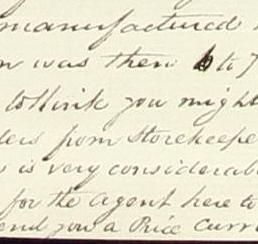 manufactured
n was then 6 to 7
to think you might
ders from Storekeepe
is very considerab
for the Agent here to
end you a Price Curr